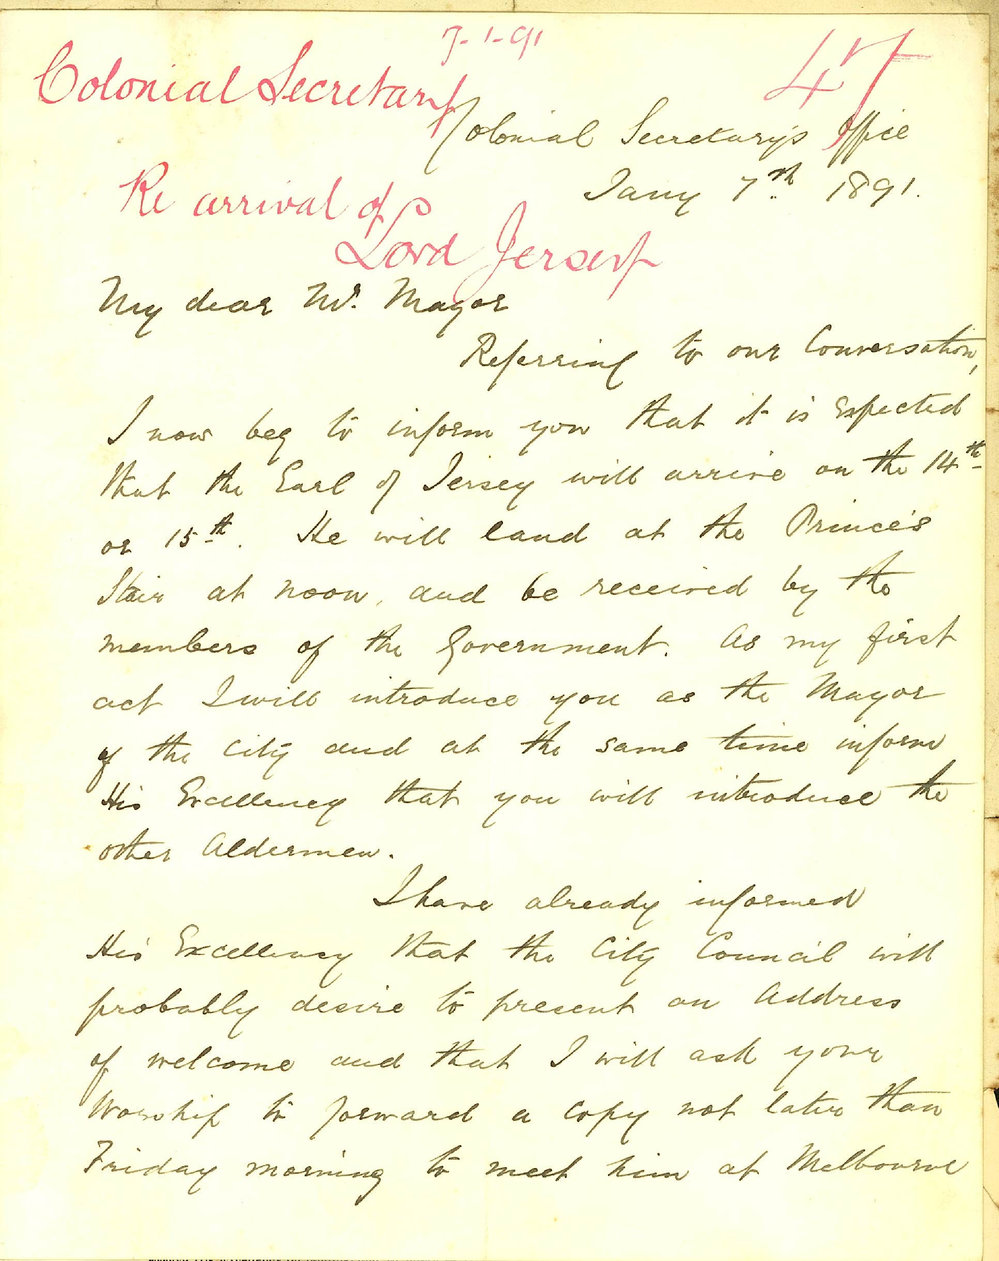 7-1-91
47
Colonial Secretary
Colonial Secretary's Office
Jany 7th 1891.
Re arrival of
Lord Jersey
My dear Mr. Mayor
Referring to our Conversation,
I now beg to inform you that it is expected
that the Earl of Jersey will arrive on the 14th
or 15th. He will land at the Prince's
Stair at noon, and be received by the
members of the Government. As my first
act I will introduce you as the Mayor
of the City and at the same time inform
His Excellency that you will introduce the
other Aldermen.
I have already informed
His Excellency that the City Council will
probably desire to present an Address
of welcome and that I will ask your
Worship to forward a copy not later than
Friday morning to meet him at Melbourne